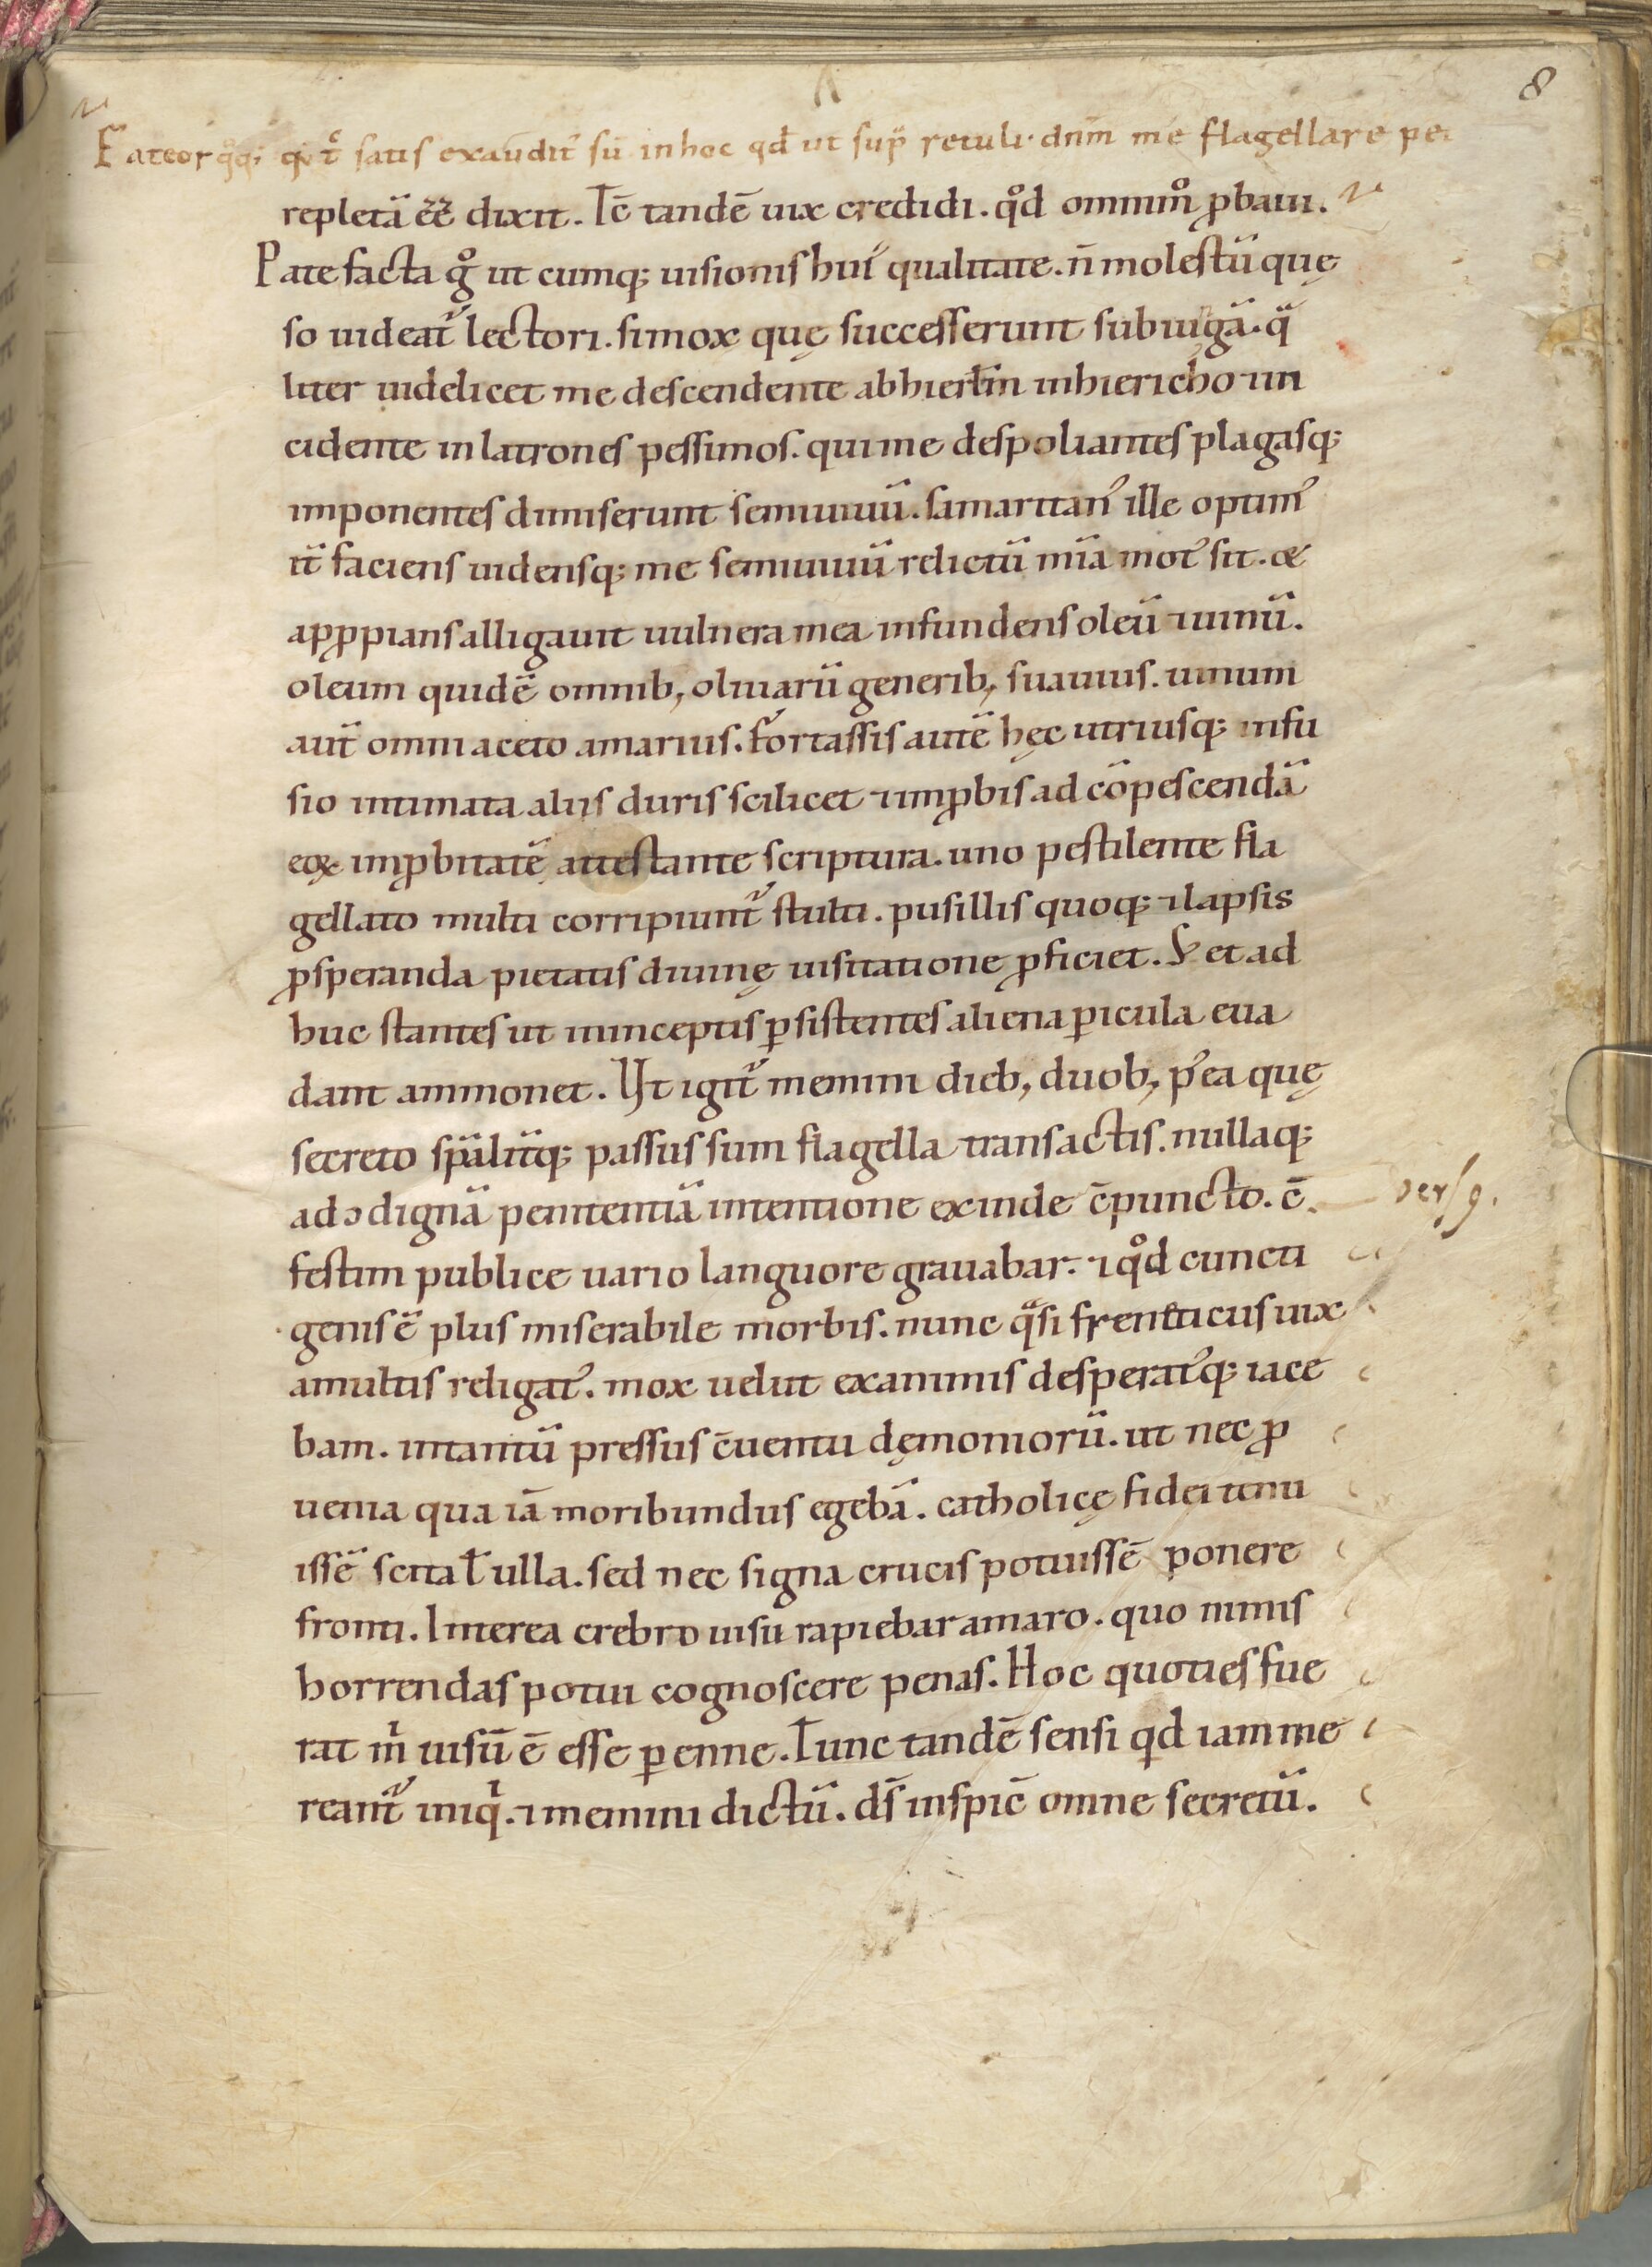 8
Fateor qͦq; qd̄ satis exaudit᷒ sū in hoc qđ ut sup̄ retuli· dnm̄ me flagellare pe
repletā eē dixit. Tc̄ tandē uix credidi. qͦd omnim̊ ꝓbaui.
Pate facta gͦ ut cumq; uisionis hui᷒ qualitate. n̄ molestū quę
so uideat᷑ lectori. si mox quę successerunt subiungā. qͣ
liter uidelicet me descendente ab hierłm in hiericho in
cidente in latrones pessimos. qui me despoliantes plagasq;
imponentes dimiserunt semiuiuū. samaritan᷒ ille optim᷒
it̄ faciens uidensq; me semiuiuū relictū mīa mot᷒ sit. &
apꝓpians alligauit uulnera mea infundens oleū ⁊ uinū.
oleum quidē omnib; oliuarū generib; suauius. uinum
aut̄ omni aceto amarius. Fortassis autē hęc utriusq; infu
sio intimata aliis duris scilicet ⁊ imꝓbis ad cōpescendā
eoꝝ imꝓbitatē attestante scriptura. uno pestilente fla
gellato multi corripiunt᷑ stulti. pusillis quoq; ⁊ lapsis
ꝓ speranda pietatis diuinę uisitatione ꝓficiet. S; et ad
huc stantes ut in inceptis ꝑsistentes aliena ꝑicula eua
dant ammonet. Ut igit᷑ memini dieb; duob; p᷒ ea quę
secreto sp̄alit̄q; passus sum flagella transactis. nullaq;
ad ↄdignā penitentiā intentione exinde c̄puncto. c̄
uersg.
festim publice uario languore grauabar. ⁊ qͦd cuncti
genis ē plus miserabile morbis. nunc qͣsi freneticus uix
a multis religat᷒. mox uelut exanimis desperat᷒q; iace
bam. in tantū pressus c̄uentu dęmoniorū. ut nec ꝓ
uenia qua iā moribundus egebā. catholicę fidei tenu
issē scita ł ulla. sed nec signa crucis potuissē ponere
fronti. Interea crebro uisu rapiebar amaro. quo nimis
horrendas potui cognoscere penas. Hoc quoties fue
rat m̍ uisū ē esse ꝑenne. Tunc tandē sensi qd iam me
reant᷑ iniq̍. ⁊ memini dictū. ds̄ inspic̄ omne secretū.